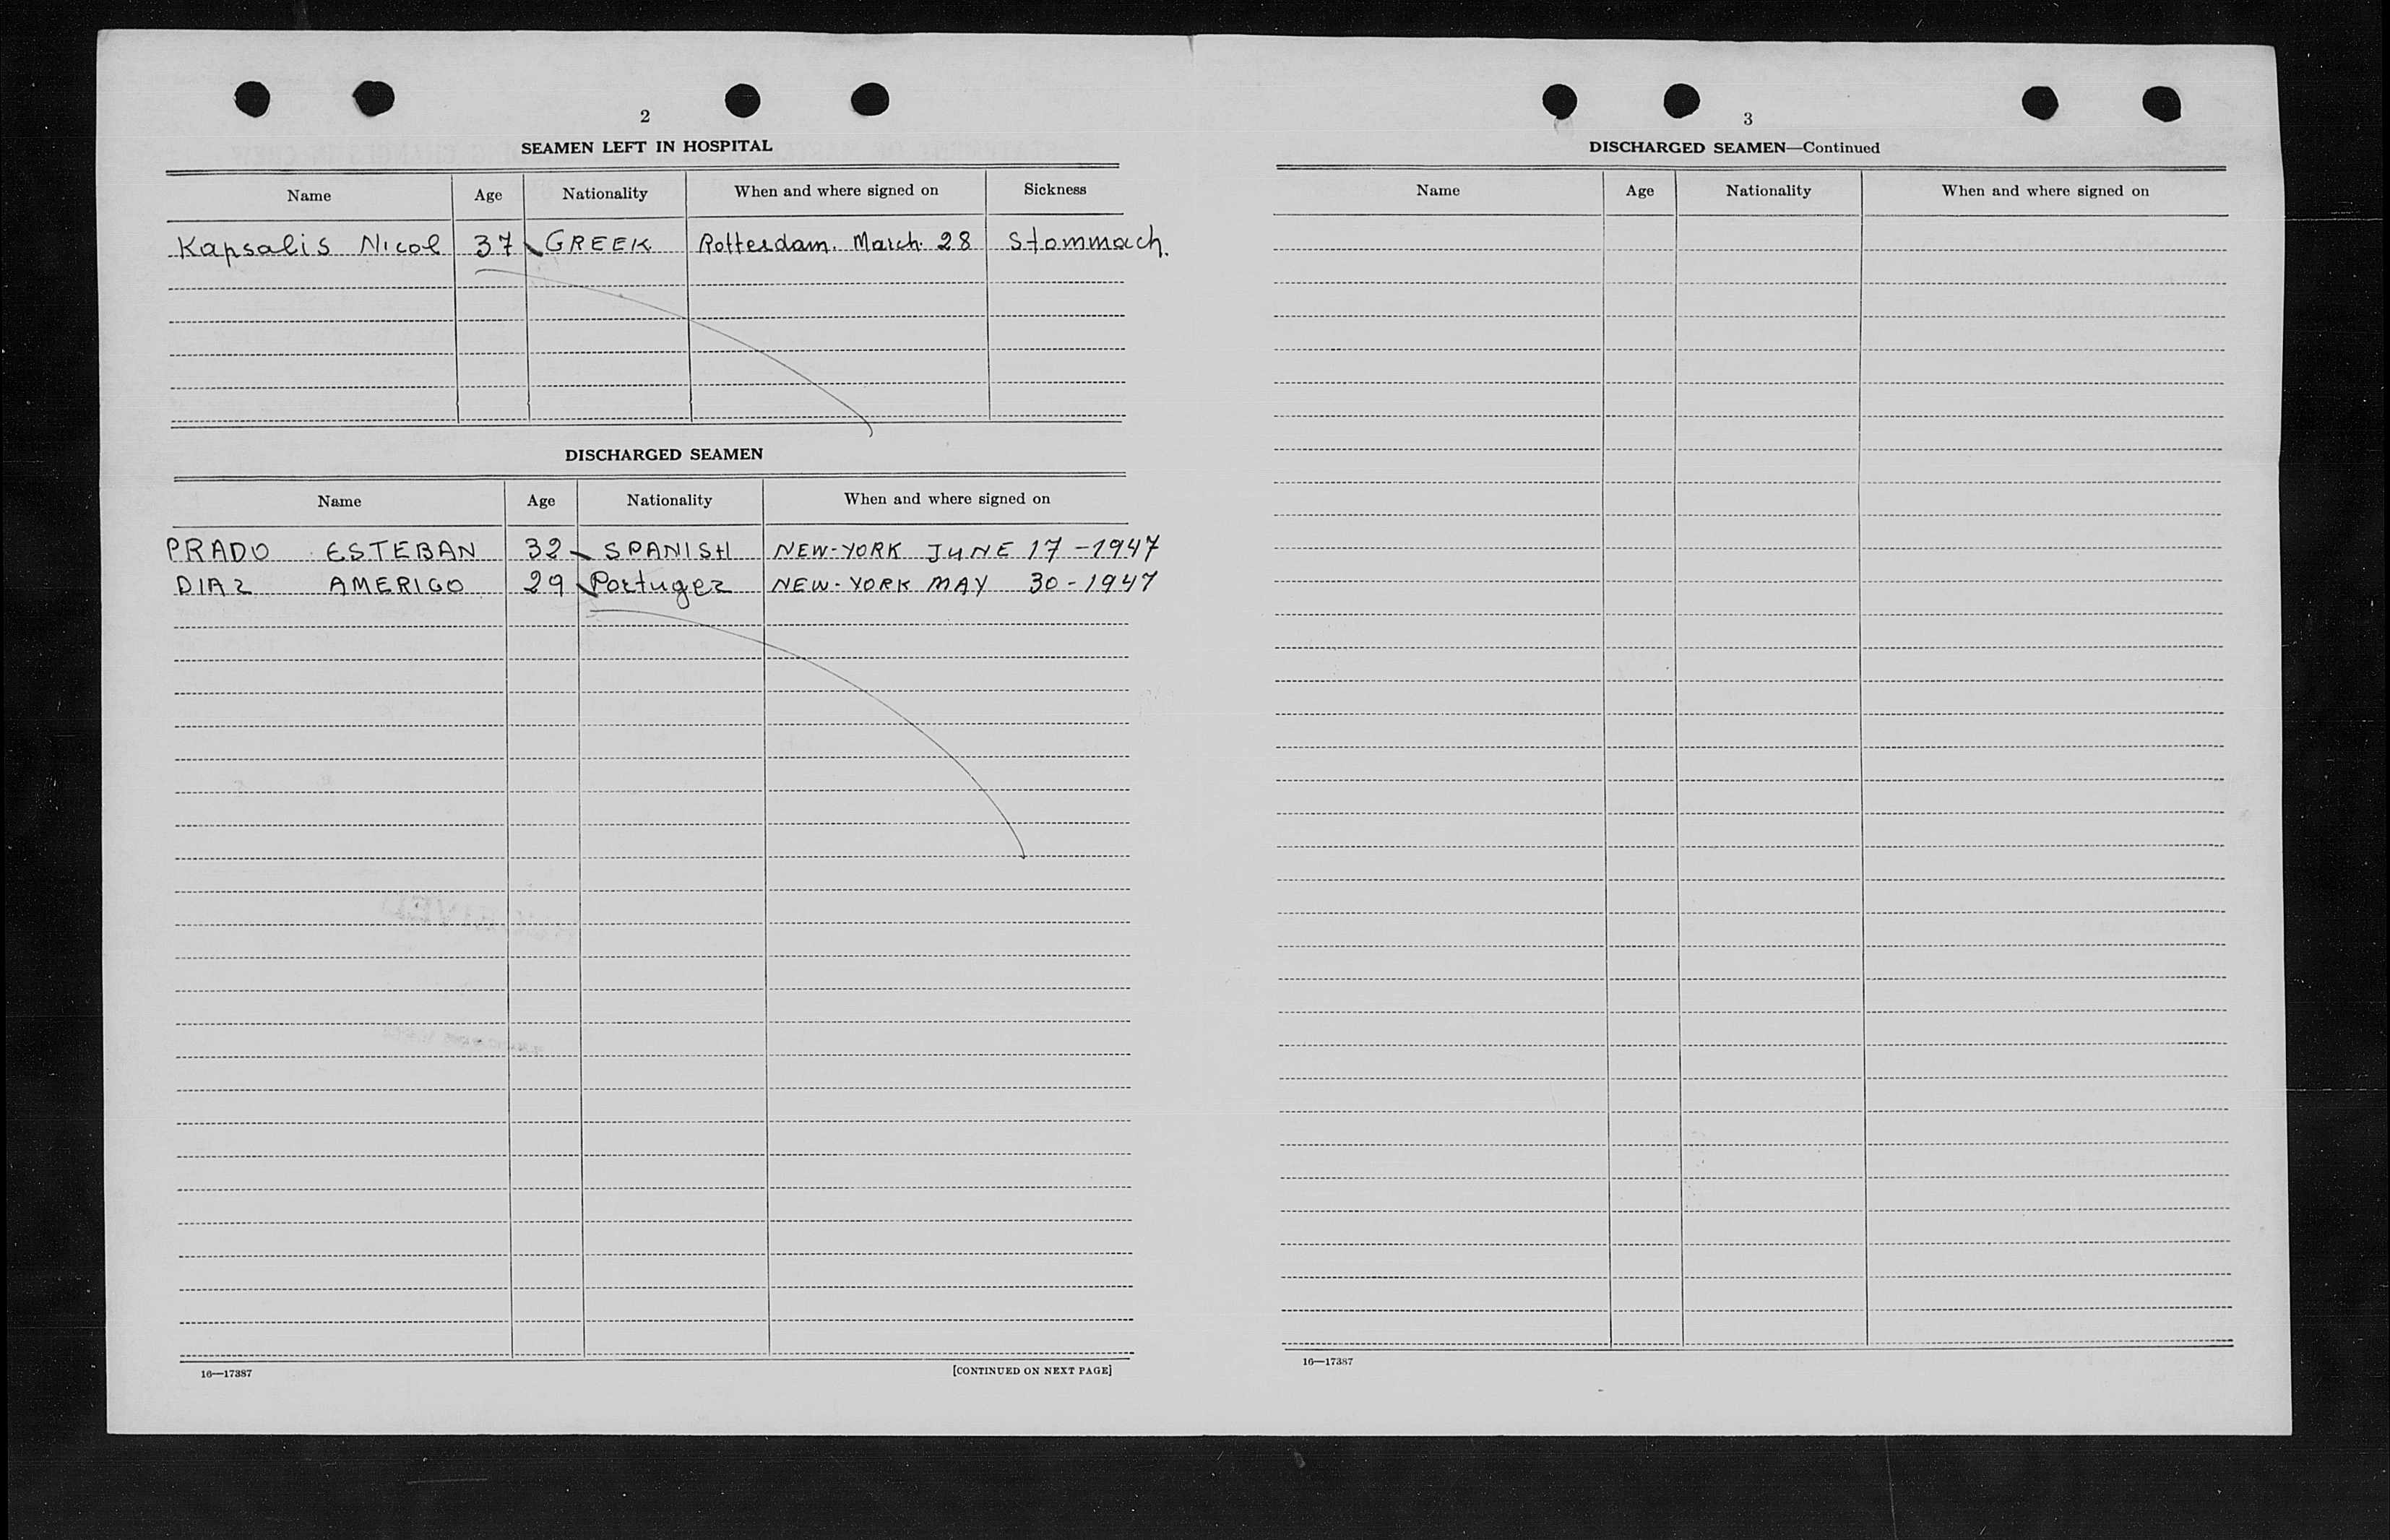 2
SEAMEN LEFT IN HOSPITAL
Name Age Nationality When and where signed on Sickness
Kapsalis Nicol 37 GREEK Rotterdam. March. 28 Stommach.
DISCHARGED SEAMEN
Name Age Nationality When and where signed on
PRADO ESTEBAN 32 SPANISH NEW-YORK JUNE 17-1947
DIAZ AMERIGO 29 Portugez NEW-YORK MAY 30-1947
16—17387 [CONTINUED ON NEXT PAGE]
3
DISCHARGED SEAMEN—Continued
Name Age Nationality When and where signed on
16—17387